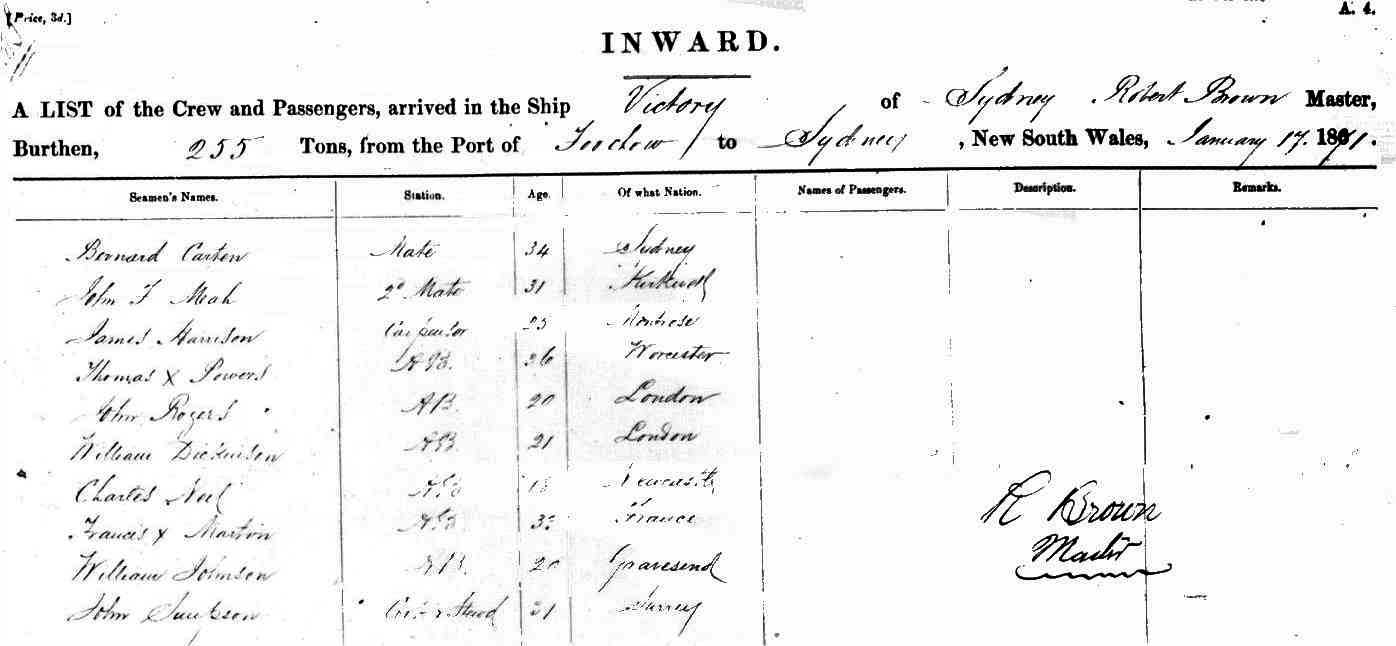 [Price, 3d.]
A. 4.
INWARD.
A LIST of the Crew and Passengers, arrived in the Ship Victory of Sydney Robert Brown Master,
Burthen, 255 Tons, from the Port of Foochow to Sydney, New South Wales, January 17. 1871.
Seamen's Names. Station. Age. Of what Nation. Names of Passengers. Description. Remarks.
Bernard Carten Mate 34 Sydney
John F Meah 2d Mate 31 Kirkwall
James Harrison Carpenter 25 Montrose
Thomas X Powers AB. 36 Worcester
John Rogers AB. 20 London
William Dickinson AB. 21 London
Charles Noel AB 18 Newcastle
Francis X Martin AB France
William Johnson AB. 20 Gravesend
John Simpson 31 Surrey
R Brown
Master